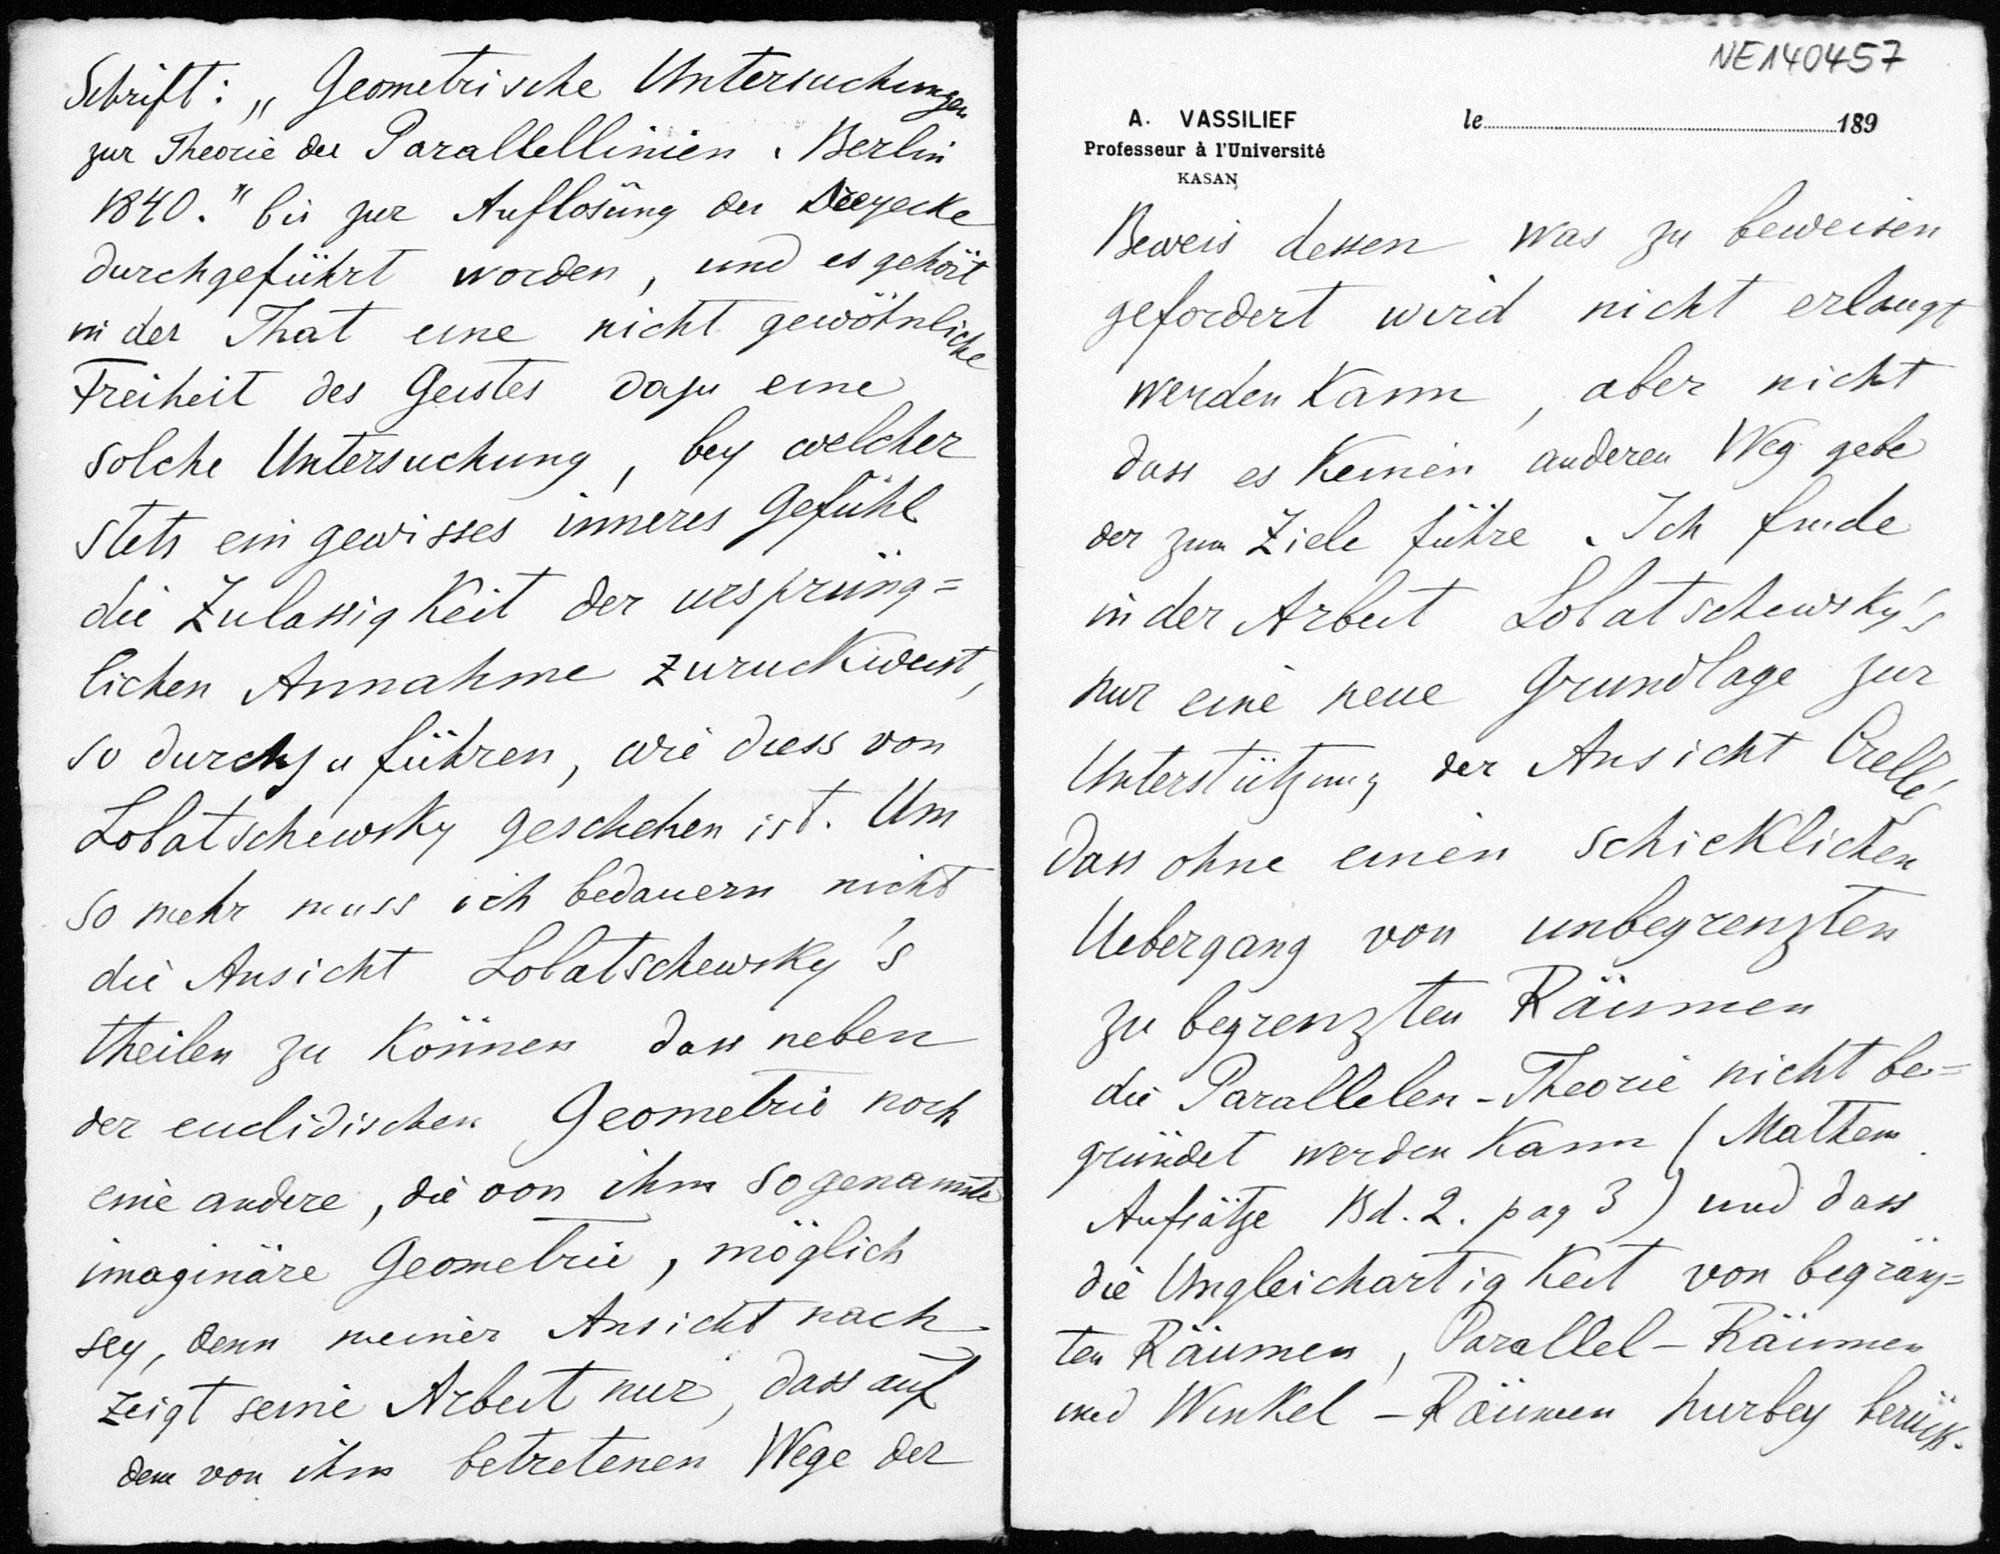 Schrift: „Geometrische Untersuchungen
zur Theorie der Parallellinien. Berlin
1840." bis zur Auflösung der Dreyecke
durchgeführt worden, und es gehört
in der That eine nicht gewöhnliche
Freiheit des Geistes dazu eine
solche Untersuchung, bey welcher
stets ein gewisses inneres Gefühl
die Zulassigkeit der ursprüng=
lichen Annahme zuruckweist,
so durchzuführen, wie diess von
Lobatschewsky geschehen ist. Um
so mehr muss ich bedauern nicht
die Ansicht Lobatschewsky's
theilen zu können dass neben
der euclidischen Geometrie noch
eine andere, die von ihm sogenannte
imaginäre Geometrie, möglich
sey, denn meiner Ansicht nach
zeigt seine Arbeit nur, dass auf
dem von ihm betretenen Wege der
NE140457
A. VASSILIEF
Professeur à l'Université
KASAN
le 189
Beweis dessen was zu beweisen
gefordert wird nicht erlangt
werden kann, aber nicht
dass es keinen anderen Weg gebe
der zum Ziele führe. Ich finde
in der Arbeit Lobatschewsky's
nur eine neue Grundlage zur
Unterstützung der Ansicht Crelle's
dass ohne einen schicklichen
Uebergang von unbegrenzten
zu begrenzten Räumen
die Parallelen-Theorie nicht be=
gründet werden kann (Mathem.
Aufsätze Bd. 2. pag 3) und dass
die Ungleichartigkeit von begränz=
ten Räumen, Parallel-Räumen
und Winkel-Räumen hierbey berück.